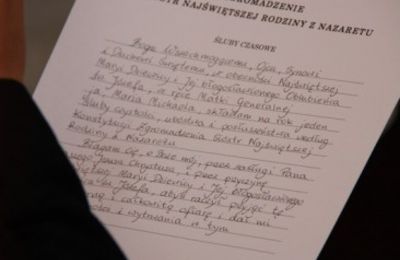 ROMADZENIE
STR NAJŚWIĘTSZEJ RODZINY Z NAZARETU
ŚLUBY CZASOWE
Bogu Wszechmogącemu, Ojcu, Synowi
i Duchowi Świętemu, w obecności Najświętszej
Maryi Dziewicy i Jej błogosławionego Oblubieńca
św. Józefa, w ręce Matki Generalnej
ja, Maria Michaela, składam na rok jeden
śluby czystości, ubóstwa i posłuszeństwa według
Konstytucji Zgromadzenia Sióstr Najświętszej
Rodziny z Nazaretu.
Błagam Cię, o Boże mój, przez zasługi Pana
Jezusa Chrystusa, i przez przyczynę
Maryi Dziewicy i Jej błogosławionego
Józefa, abyś raczył przyjąć tę
i całkowitą ofiarę i dał mi
i wytrwania w tym